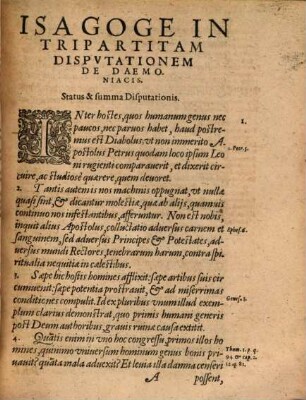 ISAGOGE IN
TRIPARTITAM
DISPVTATIONEM
DE DAEMO.
NIACIS.
Status & summa Disputationis.
INter hostes, quos humanum genus nec 1.
paucos, nec paruos habet, haud postre-
mus est Diabolus, vt non immerito A- 1. Petr. 5.
postolus Petrus quodam loco ipsum Leo
ni rugienti comparauerit, et dixerit cir-
cuire, ac studiose quærere, quem deuoret.
2. Tantis autem is nos machinis oppugnat, vt nullæ
quasi sint, & dicantur molestiæ, quæ ab alijs, quamuis
continuo nos infestantibus, afferuntur. Non est nobis,
inquit alius Apostolus, colluctatio aduersus carnem et Ephes. 6.
sanguinem, sed aduersus Principes & Potestates, ad-
uersus mundi Rectores, tenebrarum harum, contra spi-
ritualia nequitia in cælestibus.
3. Sæpe hic hostis homines afflixit: sæpe artibus suis cir
cumuenit: sæpe potentia prostrauit, & ad miserrimas
conditiones compulit. Id ex pluribus vnum illud exem- Genes. 3.
plum clarius demonstrat, quo primis humani generis
post Deum authoribus, grauis ruina causa extitit.
4. Quatis enim in vno hoc congressu, primos illos ho
mines, quinimo vniuersum hominum genus bonis pri-
uauit? quâta mala aduexit? Et leuia illa damna censeri
A possent,